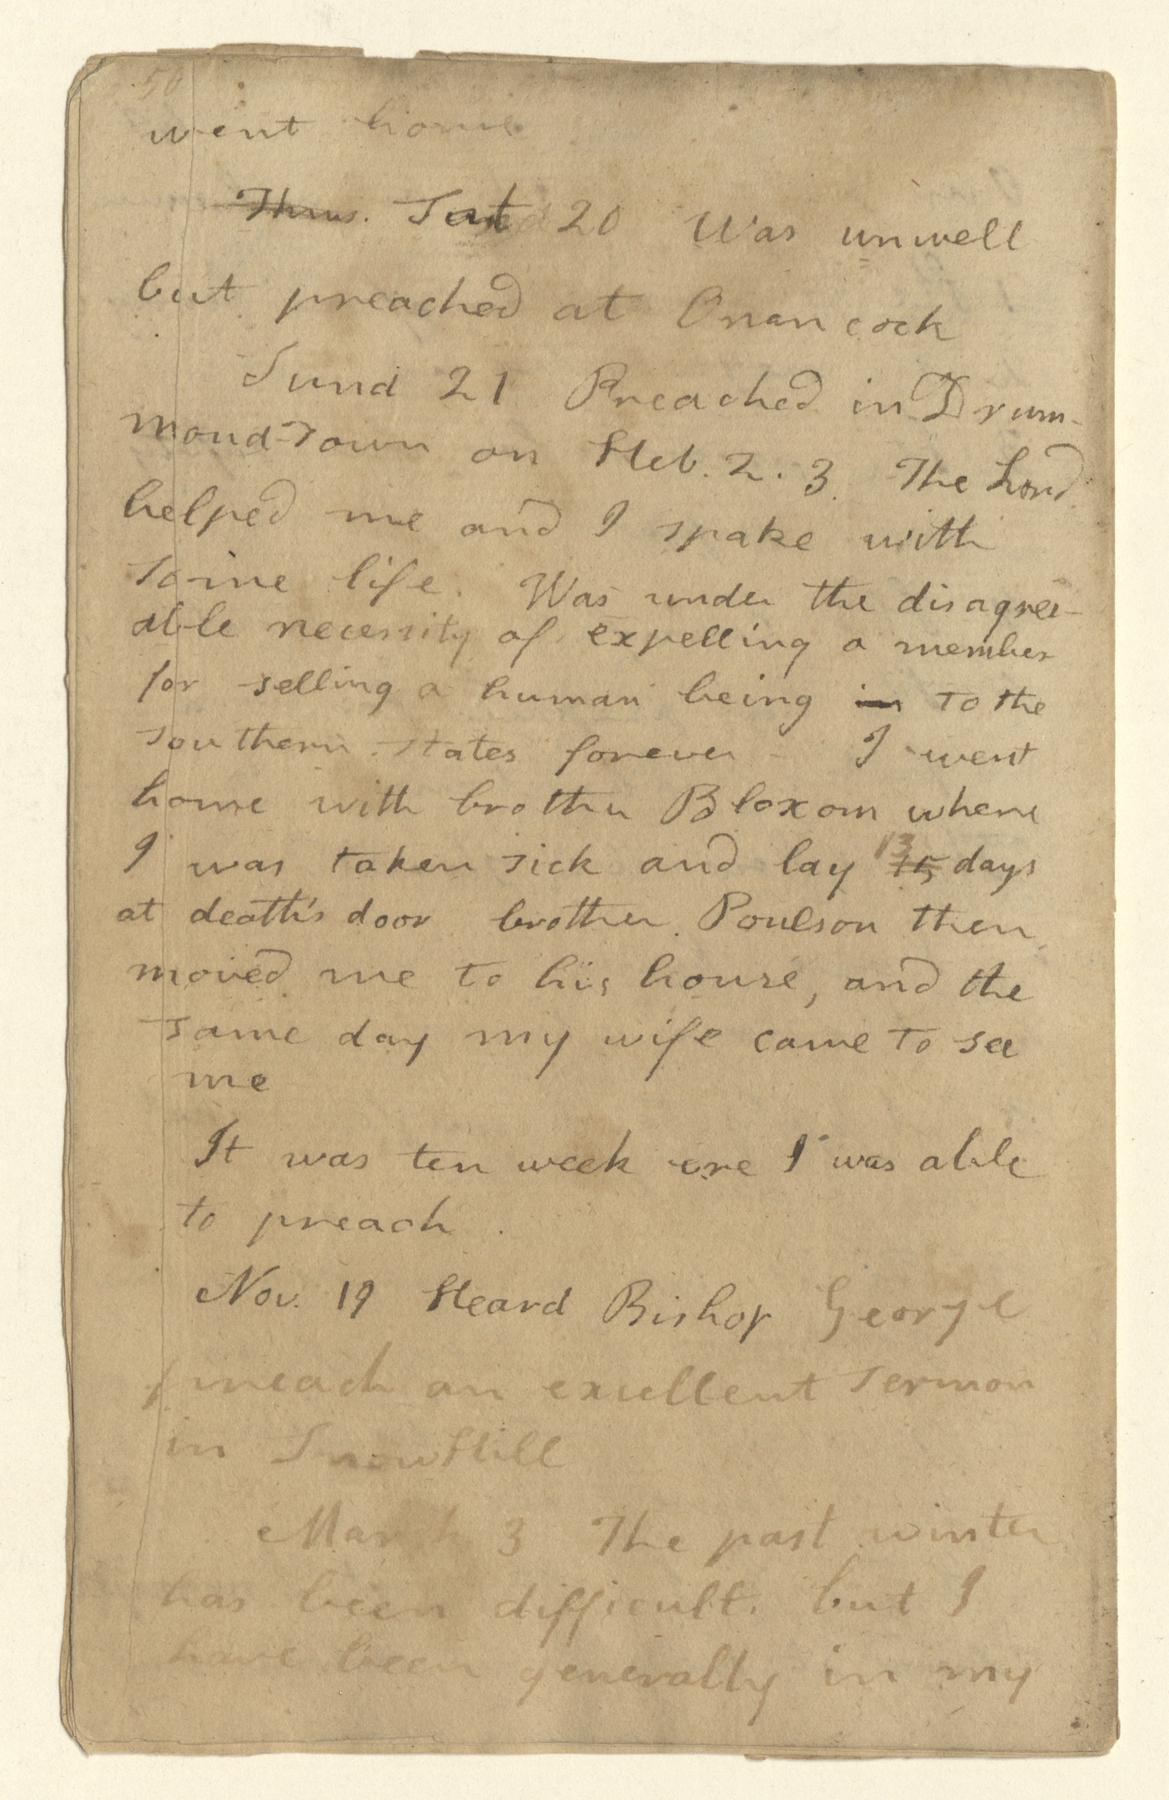 50
went home
Thurs. Sat 20 Was unwell
but preached at Onancock
Sund 21 Preached in Drum-
mond-Town on Heb. 2. 3. The Lord
helped me and I spake with
some life. Was under the disagree-
able necessity of expelling a member
for selling a human being in to the
southern states forever - I went
home with brother Bloxom where
I was taken sick and lay 13 15 days
at death's door brother Poulson then
moved me to his house, and the
same day my wife came to see
me
It was ten week ere I was able
to preach.
Nov. 19 Heard Bishop George
preach an excellent sermon
in SnowHill
March 3 The past winter
has been difficult. but I
have been generally in my